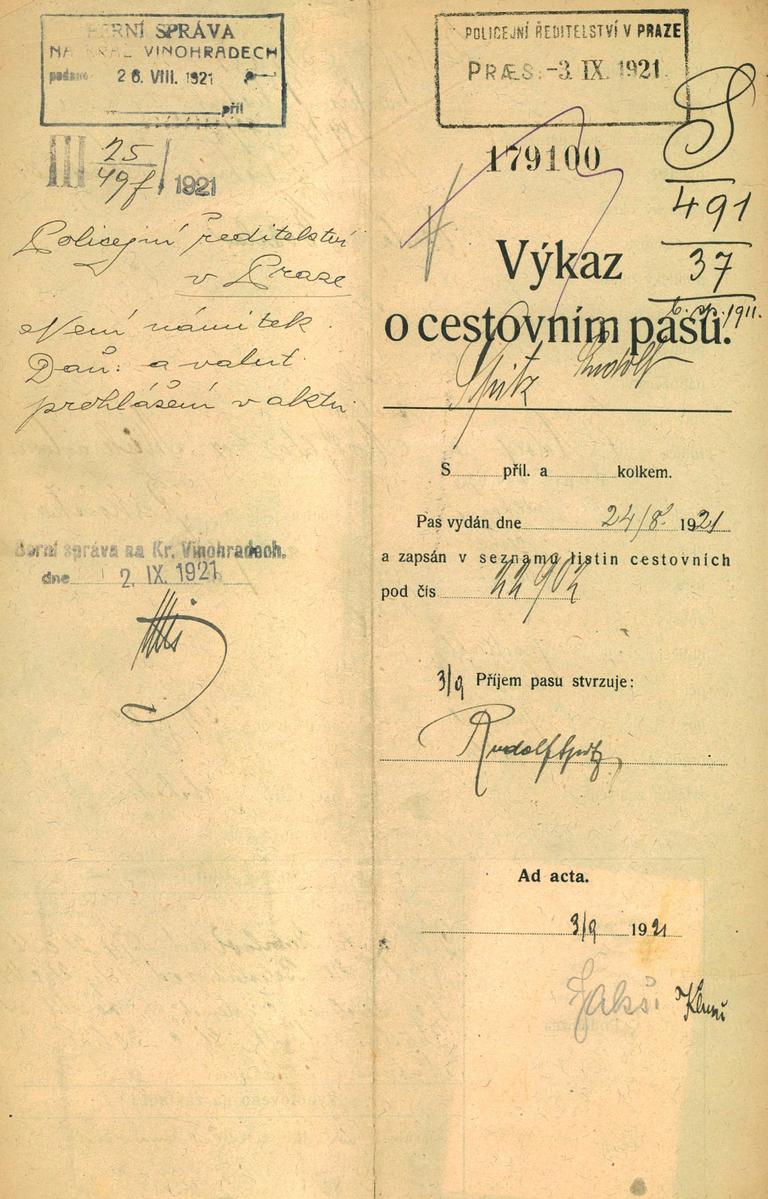 BERNÍ SPRÁVA
NA KRÁL. VINOHRADECH
podáno 26. VIII. 1921
příl
III 25/49f/1921
Policejní ředitelství
v Praze
Není námitek.
Daň: a valut.
prohlášení v aktu
Berní správa na Kr. Vinohradech,
dne 2. IX. 1921
POLICEJNÍ ŘEDITELSTVÍ V PRAZE
PRÆS. -3. IX. 1921
179100
S
491
37
Výkaz
o cestovním pasu.
Spitz Rudolf
S příl. a kolkem.
Pas vydán dne 24/8 1921
a zapsán v seznamu listin cestovních
pod čís 22902
3/9 Příjem pasu stvrzuje:
Rudolf Spitz
Ad acta.
3/9 1921